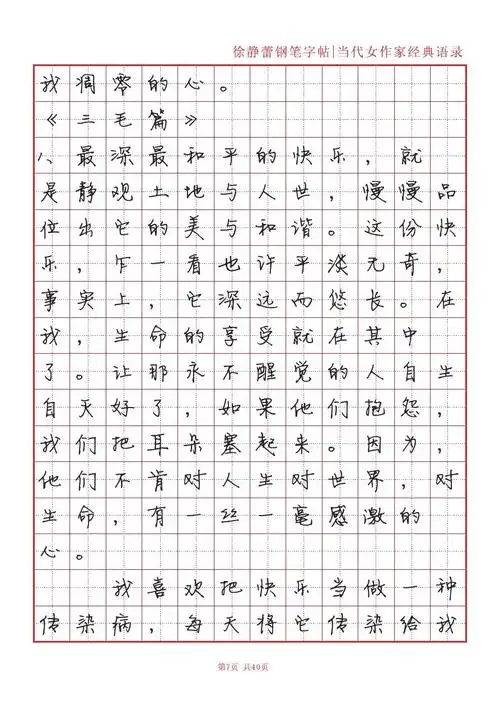 徐静蕾钢笔字帖|当代女作家经典语录
我凋零的心。
《三毛篇》
1、最深最和平的快乐，就
是静观土地与人世，慢慢品
位出它的美与和谐。这份快
乐，乍一看也许平淡无奇，
事实上，它深远而悠长。在
我，生命的享受就在其中
了。让那永不醒觉的人自生
自灭好了，如果他们抱怨，
我们把耳朵塞起来。因为，
他们不肯对人生对世界，对
生命，有一丝一毫感激的
心。
我喜欢把快乐当做一种
传染病，每天将它传染给我
第7页 共40页